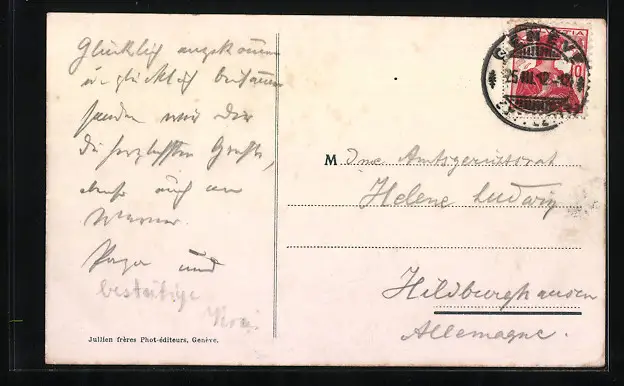 Glücklich angekommen
u. glücklich beisammen
senden wir Dir
die herzlichsten Grüße,
ebenso auch an
Werner.
Papa und
Jullien frères Phot-éditeurs, Genève.
GENÈVE
Mdme Amtsgerichtsrat
Helene Ludwig
Hildburghausen
Allemagne.